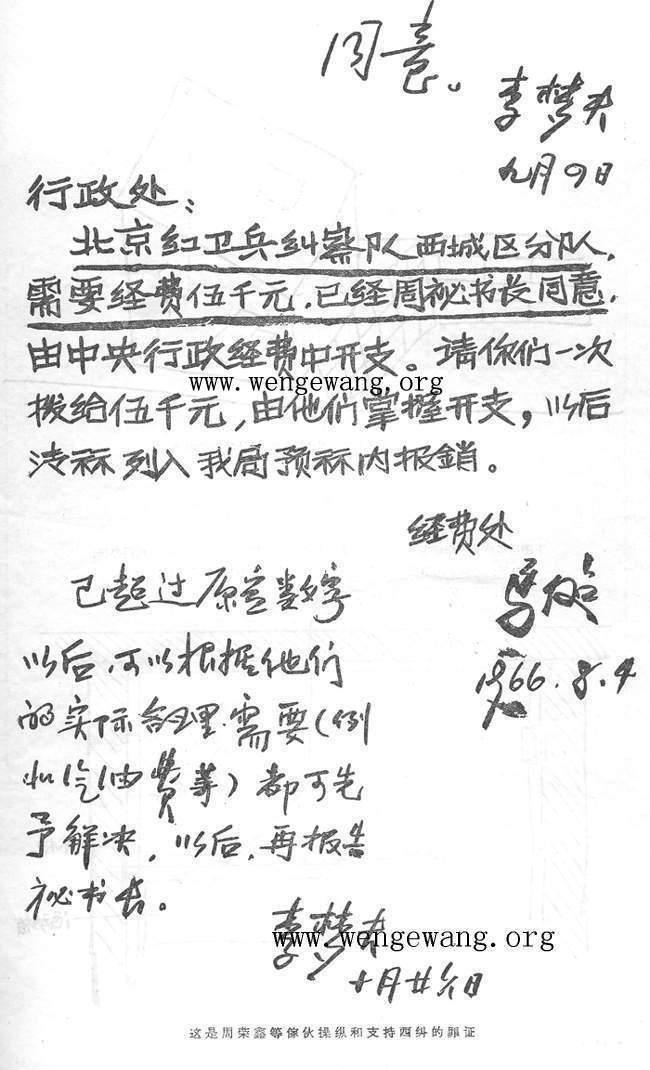 同意。
李梦夫
九月四日
行政处：
北京红卫兵纠察队西城区分队，
需要经费伍千元，已经周祕书长同意，
由中央行政经费中开支。请你们一次
www.wengewang.org
拨给伍千元，由他们掌握开支，以后
决祘列入我局预祘内报銷。
经费处
1966.9.4
已超过原定数字
以后，可以根据他们
的实际合理需要（例
如汽油费等）都可先
予解决，以后，再报告
祕书长。
李梦夫
www.wengewang.org
十月廿六日
这是周荣鑫等傢伙操纵和支持西纠的罪证